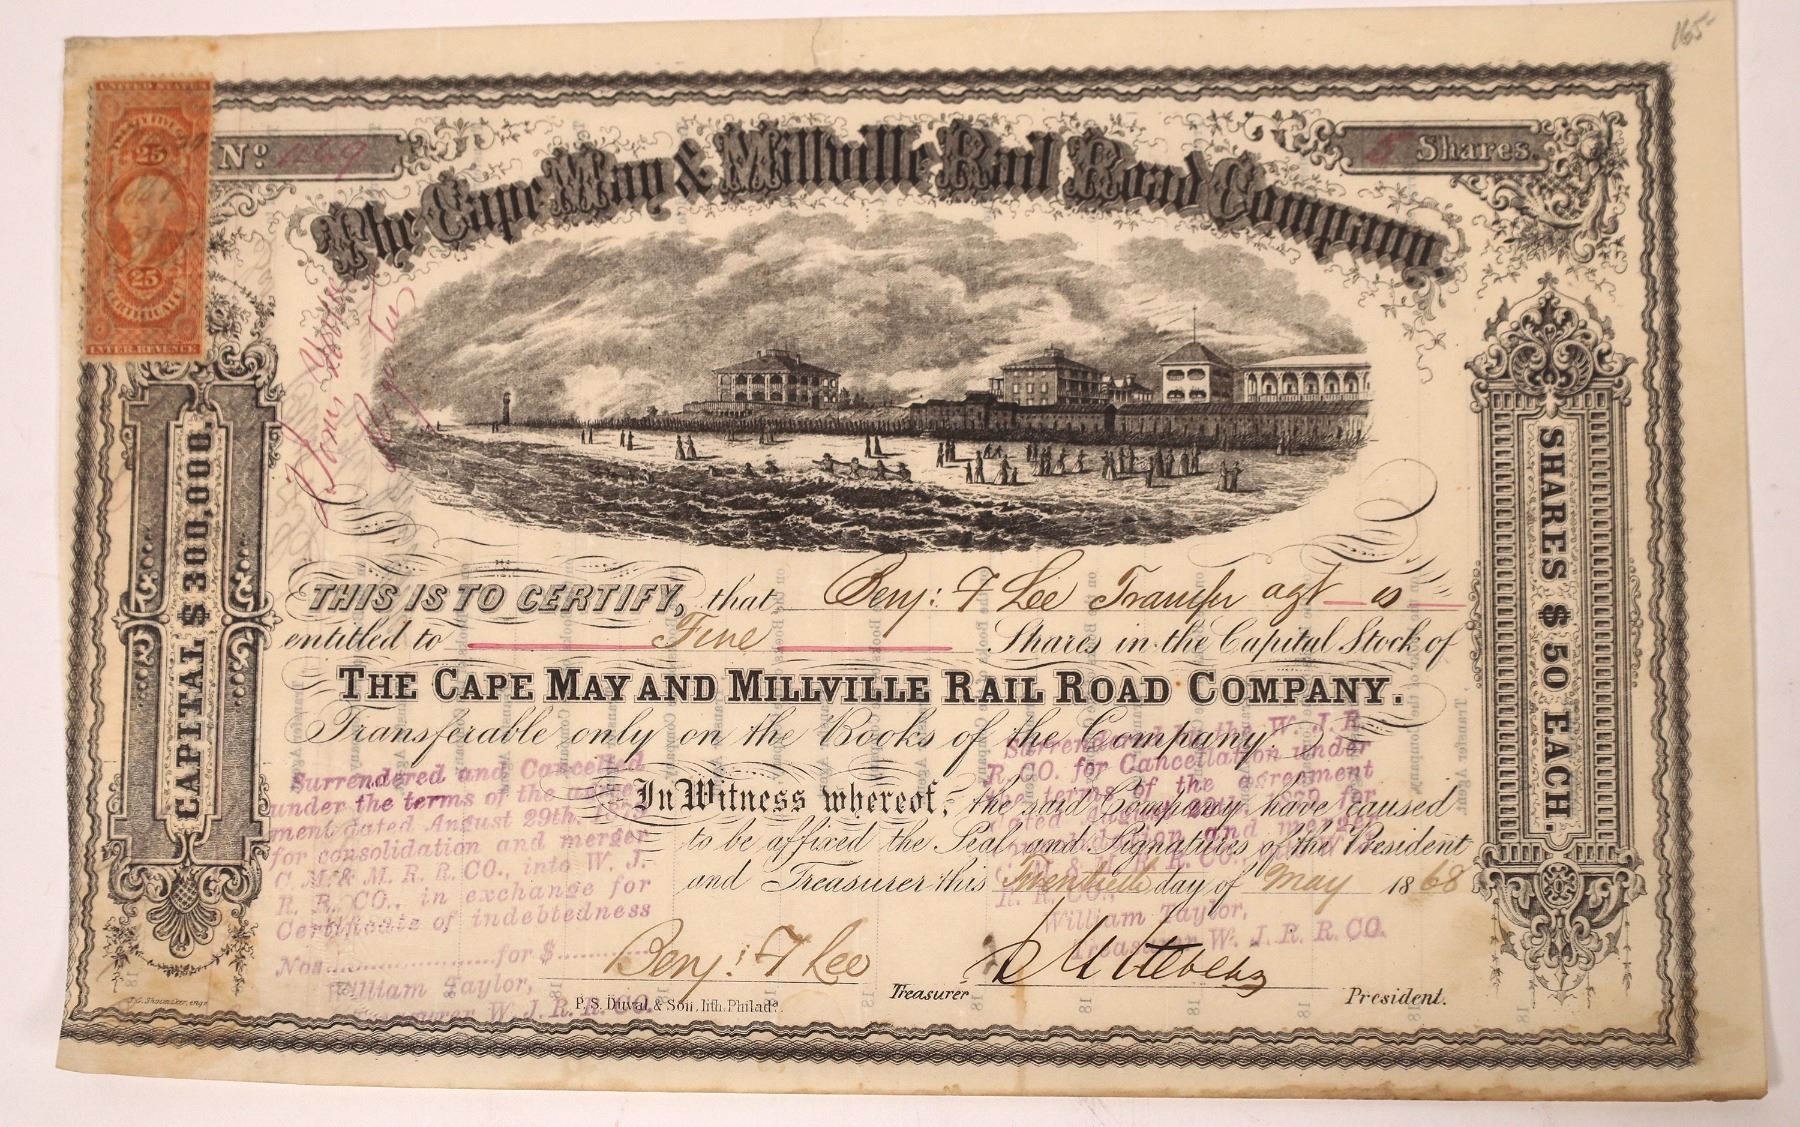 165
UNITED STATES
25
25
CERTIFICATE
INTER. REVENUE
No. 1169
5 Shares.
The Cape May & Millville Rail Road Company.
CAPITAL $300,000.
SHARES $50 EACH.
THIS IS TO CERTIFY, that Benj: F Lee Transfer agt is
entitled to Five Shares in the Capital Stock of
THE CAPE MAY AND MILLVILLE RAIL ROAD COMPANY.
Transferable only on the Books of the Company.
In Witness whereof, the said Company have caused
to be affixed the Seal and Signatures of the President
and Treasurer this Twentieth day of May 1868
Surrendered and Cancelled
under the terms of the agree-
ment dated August 29th, 1879
for consolidation and merger
C. M. & M. R. R. CO., into W. J.
R. R. CO., in exchange for
Certificate of indebtedness
Nos. for $
William Taylor,
Treasurer W. J. R. R. CO.
Surrendered by the W. J. R.
R. CO. for Cancellation under
the terms of the agreement
dated August 29th, 1879 for
consolidation and merger
C. M. & M. R. R. CO., into W. J.
R. R. CO.,
William Taylor,
Treasurer W. J. R. R. CO.
Benj: F Lee
Treasurer
President.
J. G. Shoemaker, engr.
P. S. Duval & Son, lith. Philada.